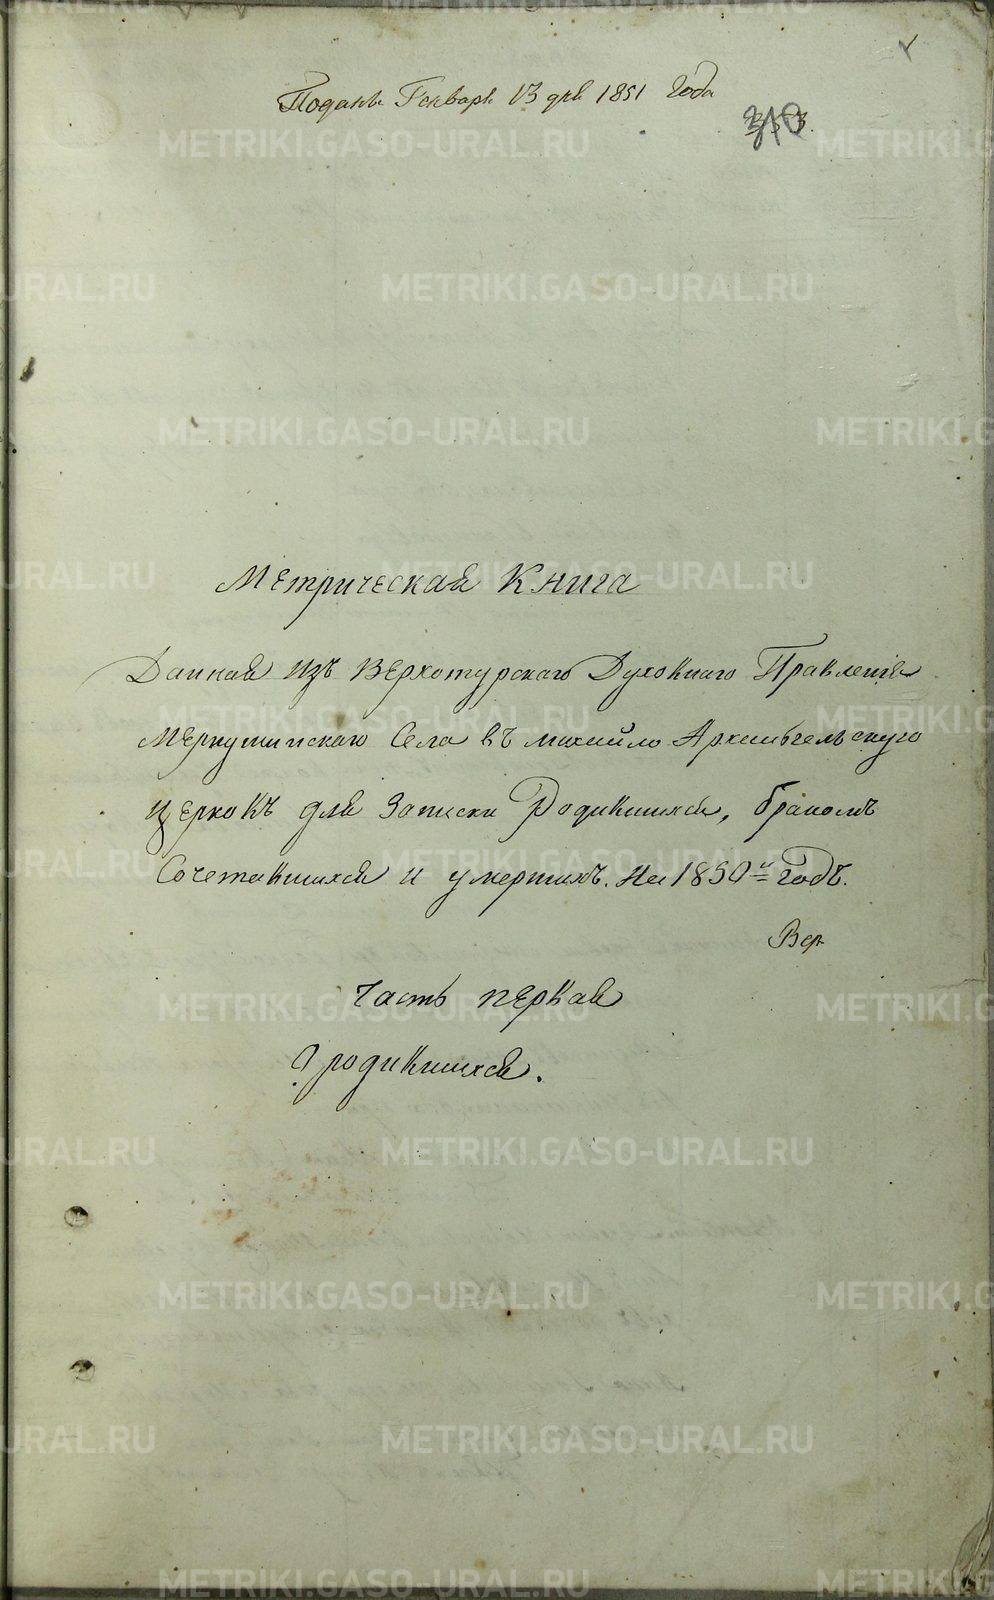 Поданъ Генваря 13 дня 1851 года
310
Метрическая Книга
Данная изъ Верхотурскаго Духовнаго Правленія
Меркушинскаго Села въ Михайло Архангельскую
церковь для Записки Родившихся, бракомъ
Сочетавшихся и умершихъ. На 1850й Годъ.
Вер
Часть первая
О родившихся.
METRIKI.GASO-URAL.RU